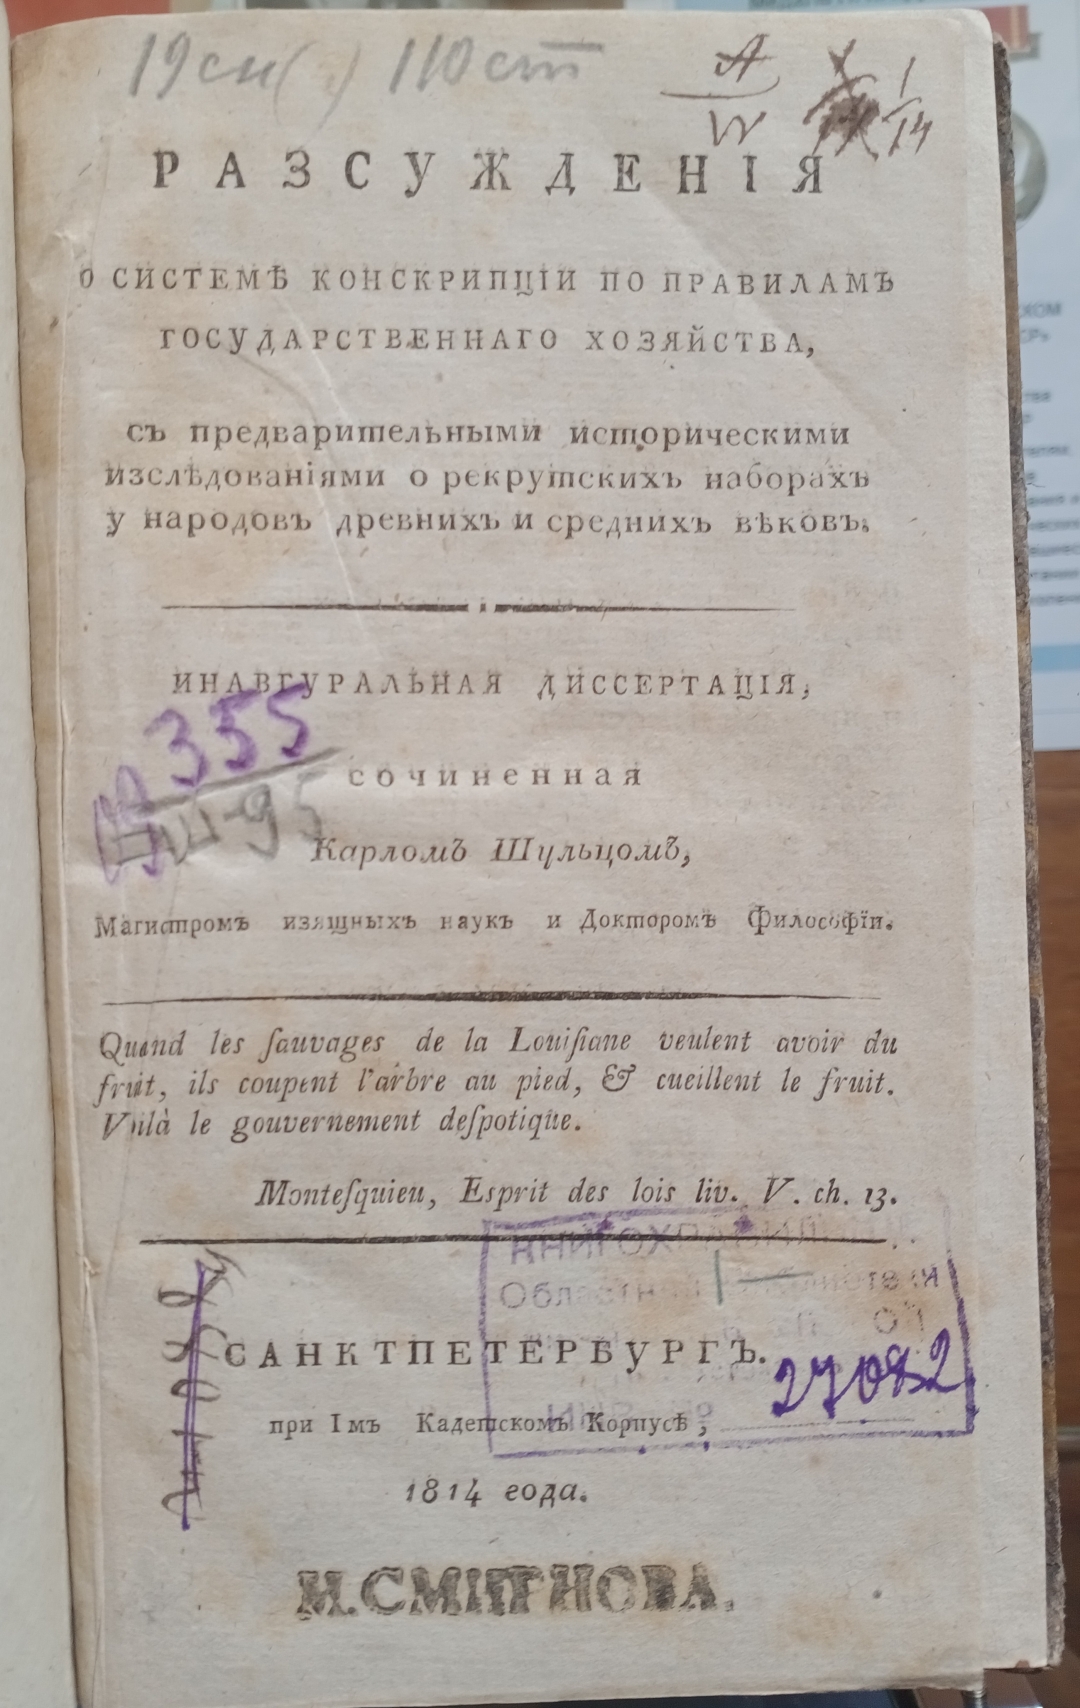 19см( ) 110ст
А
W
1/14
РАЗСУЖДЕНІЯ
О СИСТЕМѢ КОНСКРИПЦІИ ПО ПРАВИЛАМЪ
ГОСУДАРСТВЕННАГО ХОЗЯЙСТВА,
съ предварительными историческими
изслѣдованіями о рекрутскихъ наборахъ
у народовъ древнихъ и среднихъ вѣковъ.
ИНАВГУРАЛЬНАЯ ДИССЕРТАЦІЯ,
355
Ш-95
сочиненная
Карломъ Шульцомъ,
Магистромъ изящныхъ наукъ и Докторомъ Философїи.
Quand les ſauvages de la Louiſiane veulent avoir du
fruit, ils coupent l'arbre au pied, & cueillent le fruit.
Voilà le gouvernement deſpotique.
Monteſquieu, Esprit des lois liv. V. ch. 13.
КНИГОХРАНИЛИЩЕ
Областной библиотеки
САНКТПЕТЕРБУРГЪ.
27082
при Iмъ Кадетскомъ Корпусѣ,
1814 года.
И.СМИРНОВА.